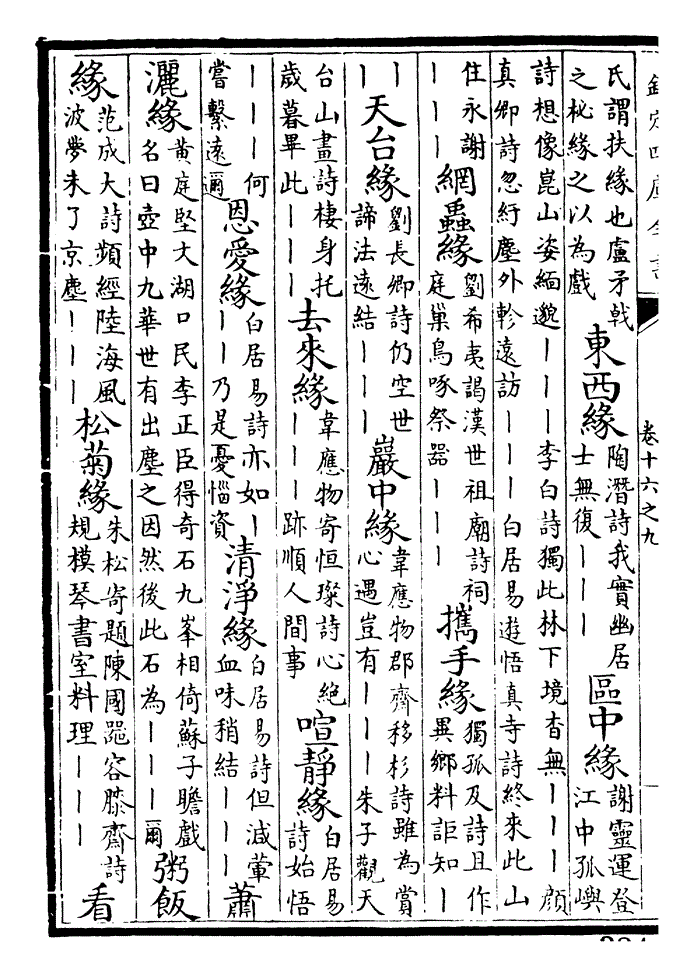 欽定四庫全書
卷十六之九
氏謂扶緣也盧矛戟
之柲緣之以為戲
東西緣
陶潛詩我實幽居
士無復丨丨丨
區中緣
謝靈運登
江中孤嶼
詩想像崑山姿緬邈丨丨丨李白詩獨此林下境杳無丨丨丨顔
真卿詩忽紆塵外軫遠訪丨丨丨白居易遊悟真寺詩終來此山
住永謝
丨丨丨
網蟲緣
劉希夷謁漢世祖廟詩祠
庭巢鳥啄祭器丨丨丨
攜手緣
獨孤及詩且作
異鄉料詎知丨
丨
丨
天台緣
劉長卿詩仍空世
諦法遠結丨丨丨
巖中緣
韋應物郡齋移杉詩雖為賞
心遇豈有丨丨丨朱子觀天
台山畫詩棲身托
歲暮畢此丨丨丨
去來緣
韋應物寄恒璨詩心絶
丨丨丨跡順人間事
喧靜緣
白居易
詩始悟
丨丨丨何
嘗繫遠邇
恩愛緣
白居易詩亦如丨
丨丨乃是憂惱資
清淨緣
白居易詩但減葷
血味稍結丨丨丨
蕭
灑緣
黃庭堅大湖口民李正臣得奇石九峯相倚蘇子瞻戲
名曰壺中九華世有出塵之因然後此石為丨丨丨爾
粥飯
緣
范成大詩頻經陸海風
波夢未了京塵丨丨丨
松菊緣
朱松寄題陳國器容膝齋詩
規模琴書室料理丨丨丨
看